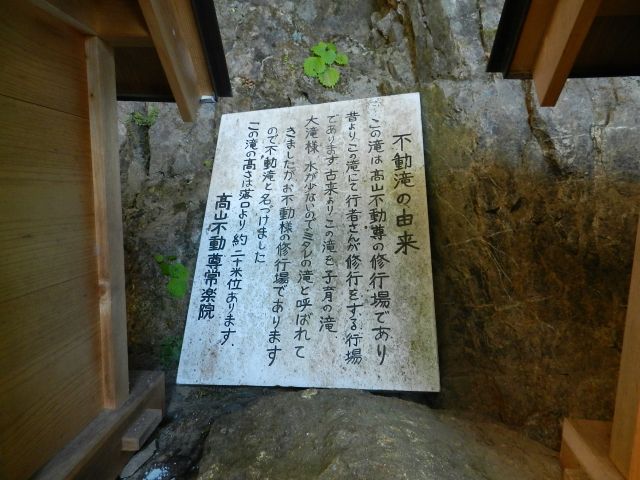 不動滝の由来
この滝は高山不動尊の修行場であり
昔よりこの滝にて行者さんが修行をする行場
であります古来よりこの滝を子育の滝
大滝様 水が少ないのでミダレの滝と呼ばれて
きましたがお不動様の修行場であります
ので不動滝と名づけました
この滝の高さは落口より 約二十米位あります.
高山不動尊常楽院